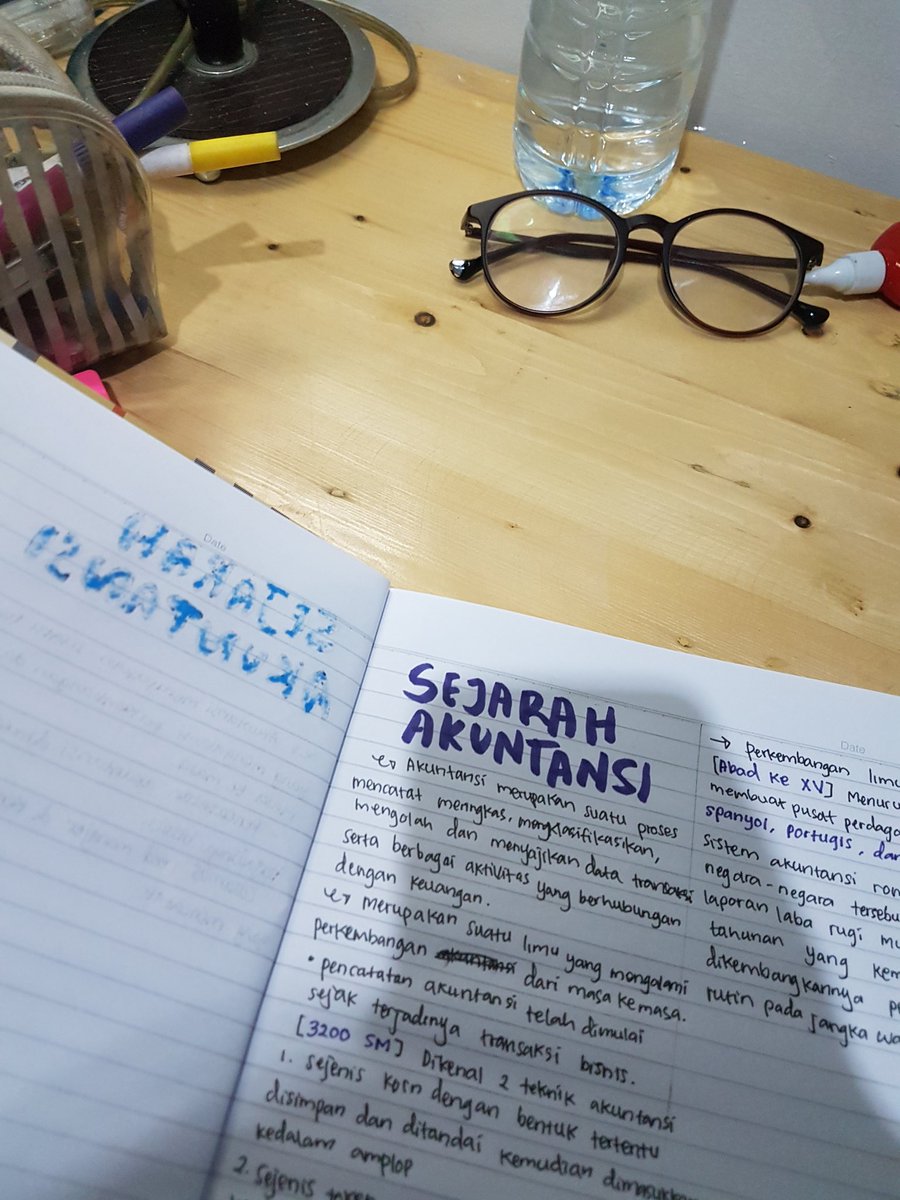 Date
SEJARAH
AKUNTANSI
Akuntansi merupakan suatu proses
mencatat meringkas, mengklasifikasikan,
mengolah dan menyajikan data transaksi
serta berbagai aktivitas yang berhubungan
dengan keuangan.
merupakan suatu limu yang mengalami
perkembangan akuntansi dari masa kemasa.
• pencatatan akuntansi telah dimulai
sejak terjadinya transaksi bisnis.
[3200 SM] Dikenal 2 teknik akuntansi
1. sejenis koin dengan bentuk tertentu
disimpan dan ditandai kemudian
kedalam amplop
2. Sejenis
Date
→ perkembangan
[Abad ke XV]
membuat pusat
spanyol, portugis,
sistem akuntansi
negara-negara
laporan laba rugi
tahunan yang
dikembangkannya
rutin pada jangka